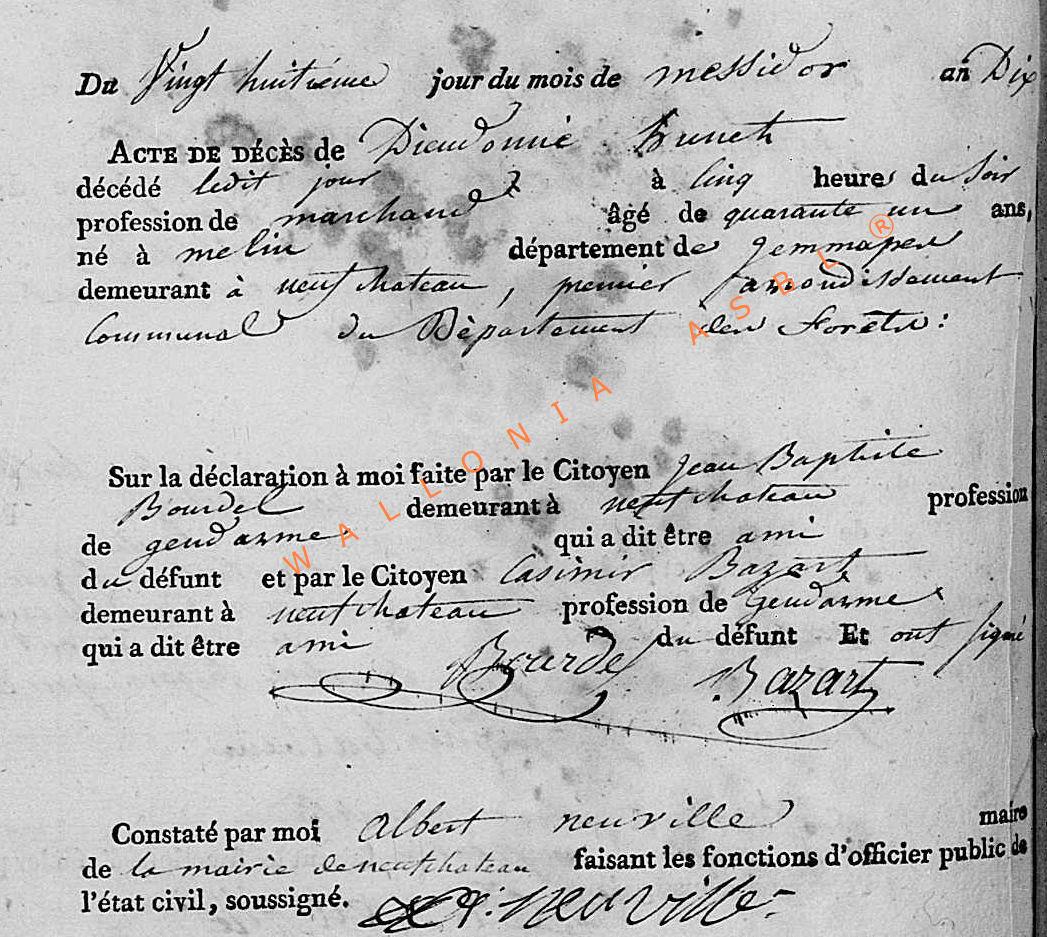 Du Vingt huitieme jour du mois de messidor an Dix
ACTE DE DÉCÈS de Dieudonné Brunet
décédé ledit jour à Cinq heures du Soir
profession de marchand âgé de quarante un ans,
né à melin département de Jemmapes
demeurant à neufchateau, premier arrondissement
Communal du Département des Forêts:
Sur la déclaration à moi faite par le Citoyen Jean Baptiste
Bourdel demeurant à neufchateau profession
de gendarme qui a dit être ami
du défunt et par le Citoyen Casimir Bazart
demeurant à neufchateau profession de Gendarme
qui a dit être ami du défunt Et ont signé
Bourdel Bazart
Constaté par moi Albert neuville maire
de la mairie de neufchateau faisant les fonctions d'officier public de
l'état civil, soussigné. A. neuville
WALLONIA ASBL ®